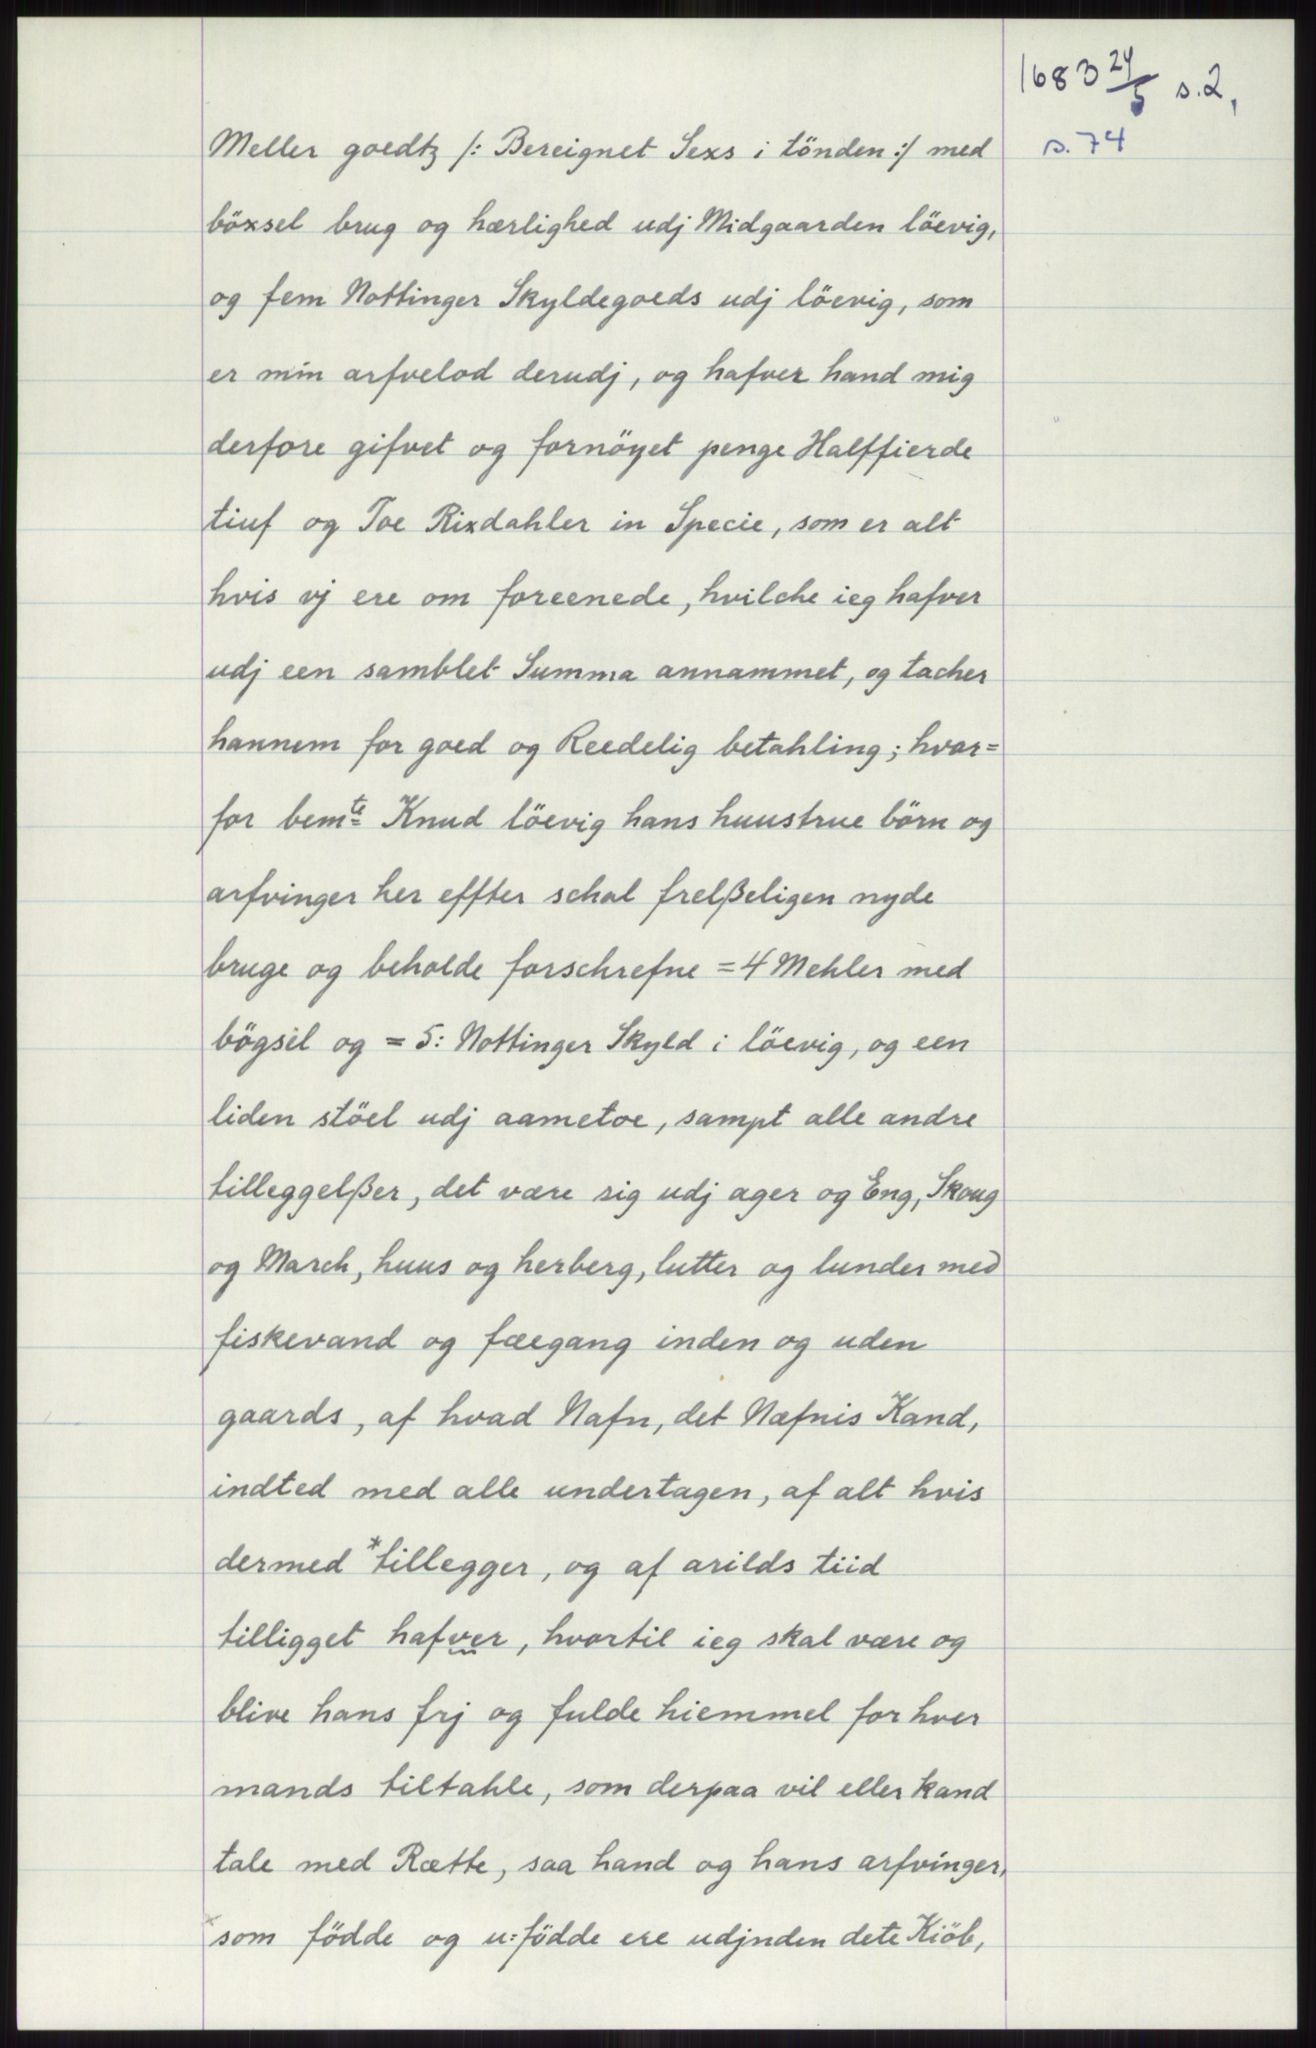 1683 24/5 s. 2,
s. 74
Meller goedtz /: Bereignet Sexs i tönden :/ med
böxsel brug og hærlighed udj Midgaarden löevig,
og fem Nottinger Skyldegoeds udj löevig, som
er min arfvelod derudj, og hafver hand mig
derfore gifvet og fornöyet penge Halffierde
tiuf og Toe Rixdahler in Specie, som er alt
hvis vj ere om foreenede, hvilche ieg hafver
udj een samblet Summa annammet, og tacher
hannem for goed og Reedelig betahling; hvor=
for bemte Knud löevig hans huustrue börn og
arfvinger her effter schal frelßeligen nyde
bruge og beholde forschrefne = 4 Mehler med
bögsel og = 5: Nottinger Skyld i löevig, og een
liden stöel udj aametoe, sampt alle andre
tilleggelßer, det være sig udj ager og Eng, Skoug
og March, huus og herberg, lutter og lunder med
fiskevand og fæegang inden og uden
gaards, af hvad Nafn, det Næfnis Kand,
indted med alle undertagen, af alt hvis
dermed *tillegger, og af arilds tiid
tilligget hafver, hvortil ieg skal være og
blive hans frj og fulde hiemmel for hver
mands tiltahle, som derpaa vil eller kand
tale med Rætte, saa hand og hans arfvinger,
som födde og u:födde ere udjnden dete Kiöb,